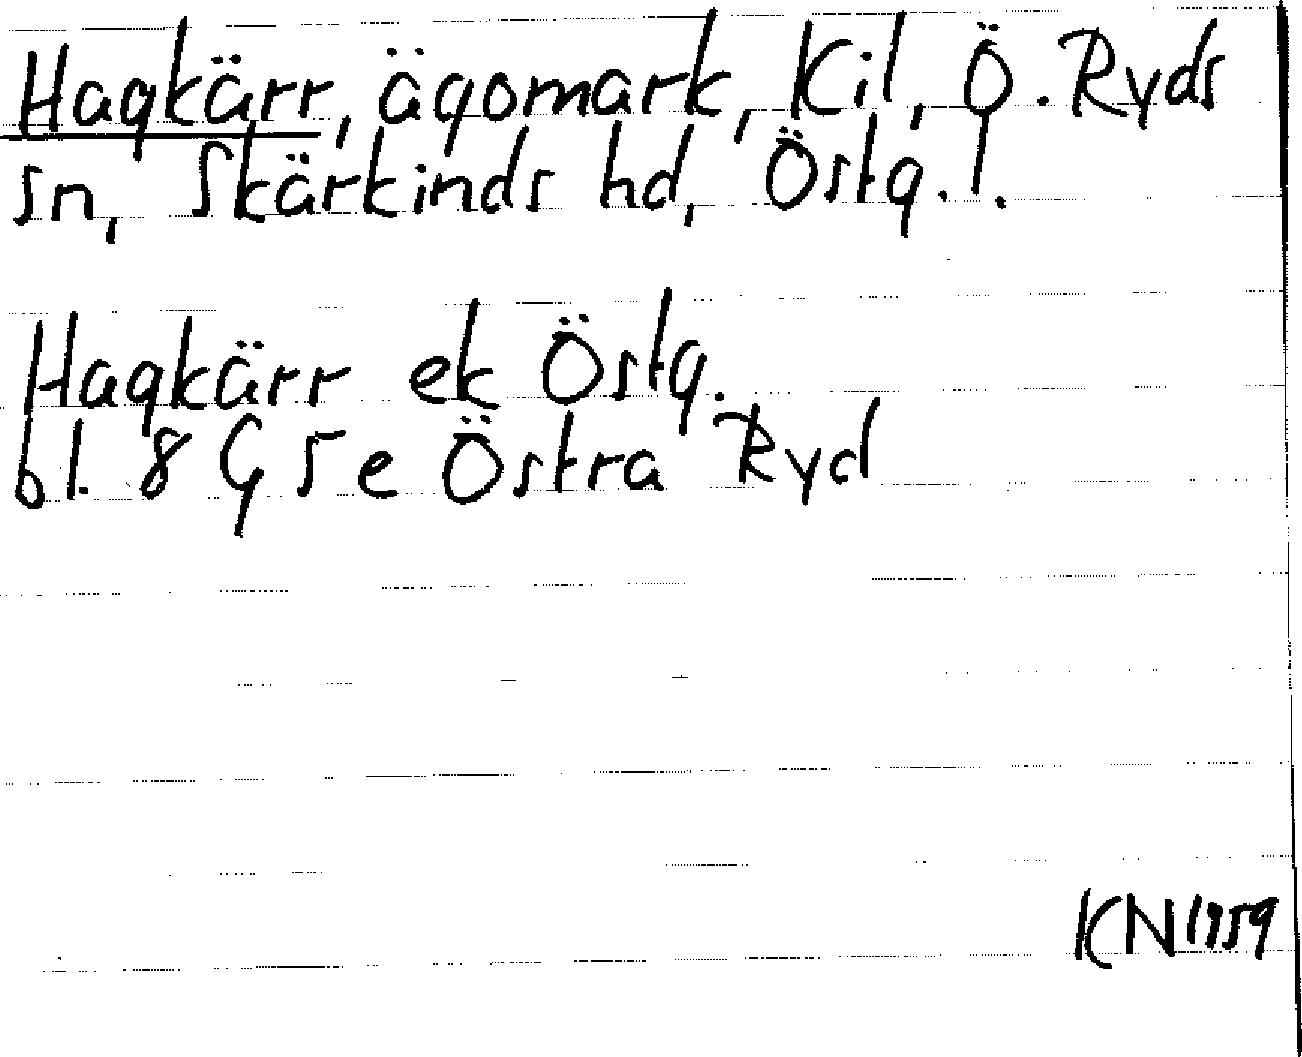 Hagkärr, ägomark, Kil, Ö. Ryds
sn, Skärkinds hd, Östg. l.
Hagkärr ek Östg.
bl. 8 G 5 e Östra Ryd
KN 1959